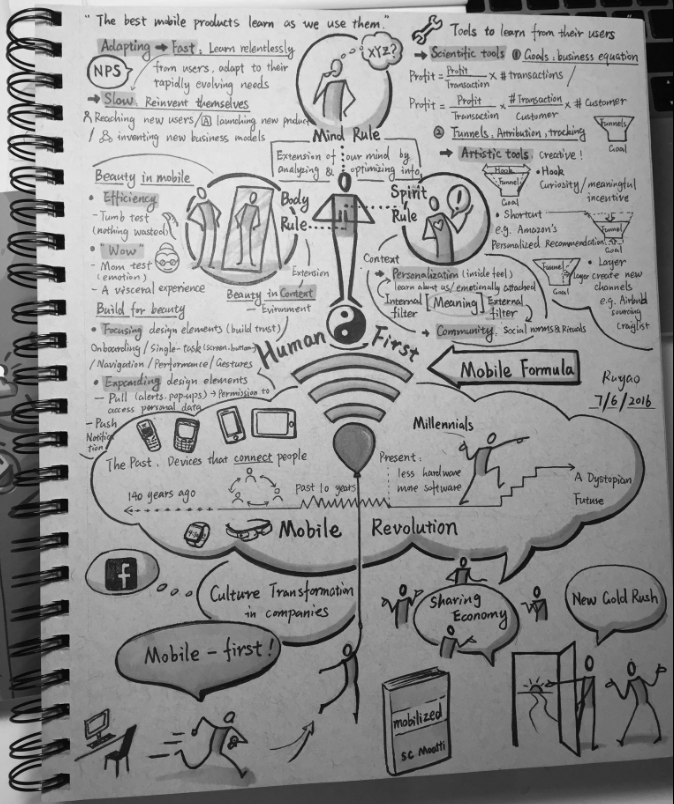 "The best mobile products learn as we use them."
Adapting → Fast. Learn relentlessly
from users, adapt to their
rapidly evolving needs
NPS
→ Slow. Reinvent themselves
Reaching new users / A launching new product
/ inventing new business models
XYZ?
Mind Rule
Extension of our mind by
analyzing & optimizing info.
Tools to learn from their users
→ Scientific tools ① Goals, business equation
Profit = Profit / Transaction × # transactions /
Profit = Profit / Transaction × # Transaction / Customer × # Customer
② Funnels, Attribution, tracking
Funnels
Goal
→ Artistic tools. creative!
Hook
Funnel
Goal
• Hook
Curiosity/meaningful
incentive
• Shortcut
e.g. Amazon's
Personalized Recommendation
Funnel
Goal
Funnel
Layer
Goal
• Layer
create new
channels
e.g. Airbnb
sourcing
craiglist
Beauty in mobile
• Efficiency
- Tumb test
(nothing wasted)
• "Wow"
- Mom test
(emotion)
- A visceral experience
Body
Rule
Extension
Beauty in Context
- Evironment
Spirit
Rule
!
Context
→ Personalization (inside feel)
learn about us/emotionally attached
Internal filter [Meaning] External filter
→ Community. Social norms & Rituals
Build for beauty
• Focusing design elements (build trust)
Onboarding / Single-task (screen.button)
/ Navigation / Performance / Gestures
• Expanding design elements
- Pull (alerts. pop-ups) → Permission to
access personal data
- Push
Notifica
tion
Human First
Mobile Formula
Ruyao
7/6/2016
The Past. Devices that connect people
Millennials
Present:
less hardware
more software
140 years ago
Past 10 years
A Dystopian
Future
Mobile Revolution
f
Culture Transformation
in companies
Sharing
Economy
New Gold Rush
Mobile - first!
mobilized
SC Moatti